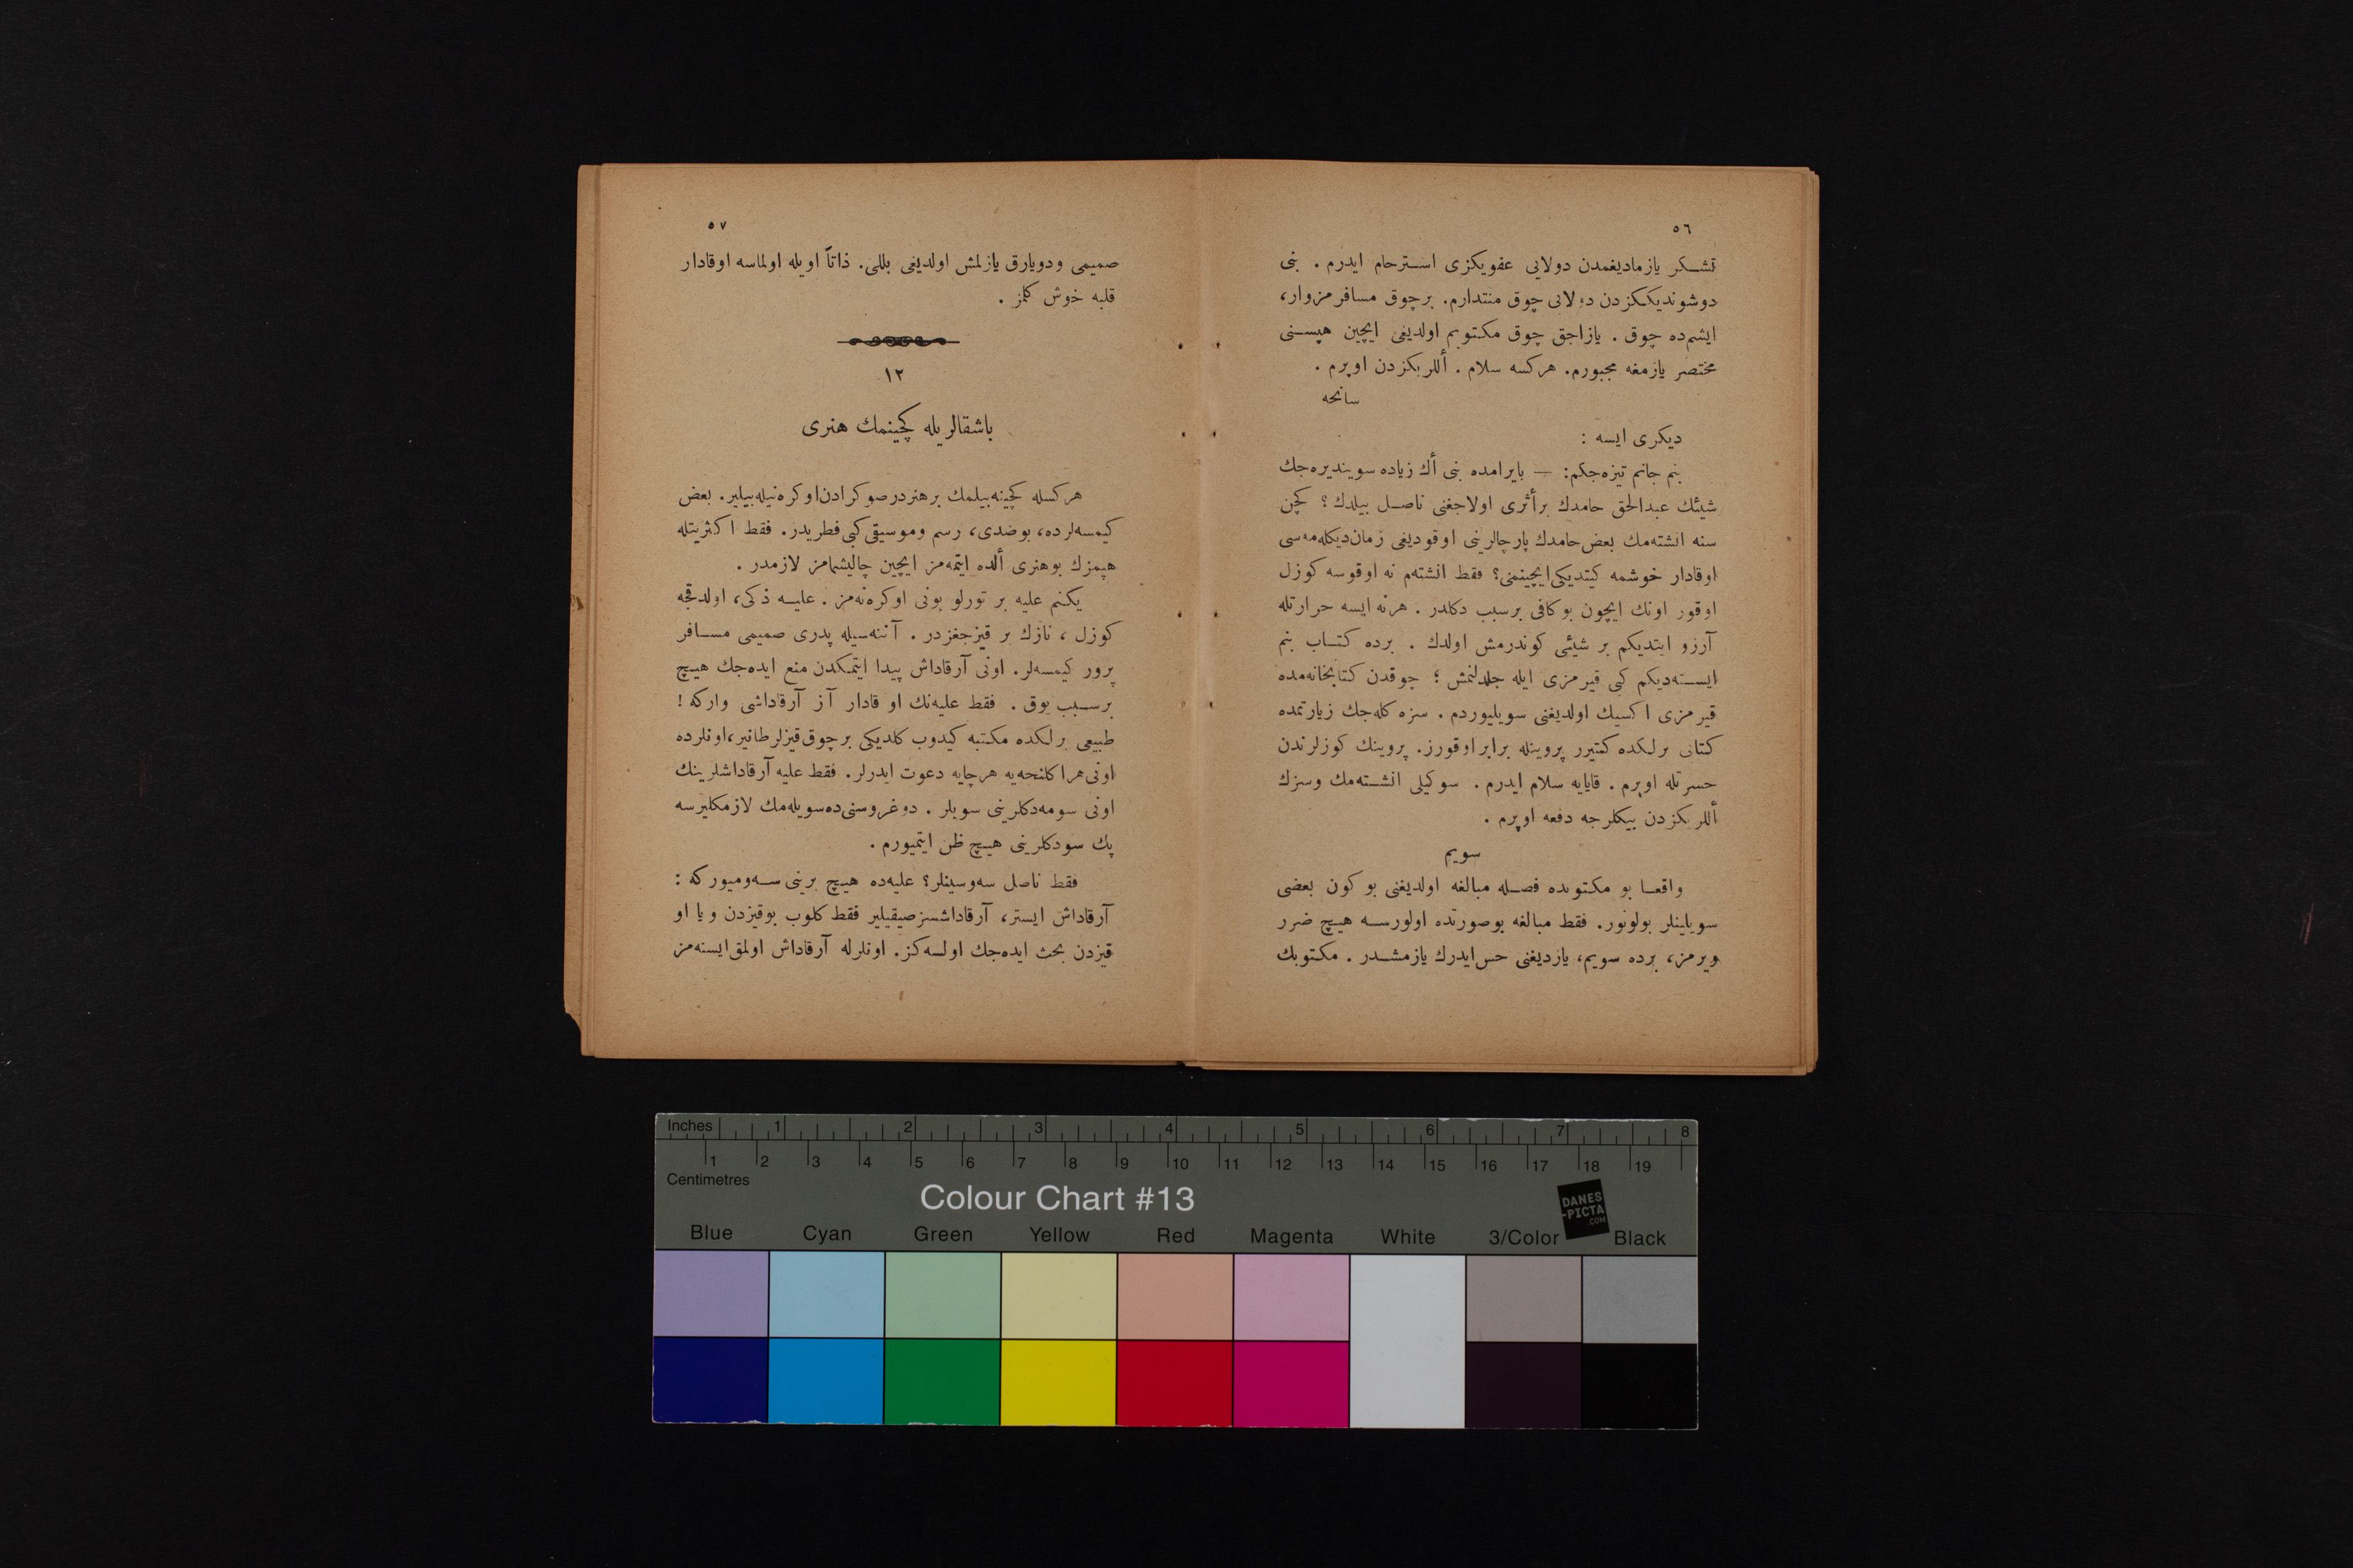 ٥٦
تشكر يازماديغمدن دولايى عفويكزى استرحام ايدرم . بنى
دوشونديككزدن دولايى چوق منتدارم. برچوق مسافرمزوار،
ايشم‌ده چوق . يازاجق چوق مكتوبم اولديغى ايچين هپسنى
مختصر يازمغه مجبورم. هركسه سلام . أللريكزدن اوپرم .
سانحه
ديكرى ايسه :
بنم جانم تيزه‌جكم: — بايرامده بنى أك زياده سوينديره‌جك
شيئك عبدالحق حامدك برأثرى اولاجغنى ناصل بيلدك ؟ كچن
سنه انشته‌مك بعض حامدك پارچالرينى اوقوديغى زمان‌ديكله‌مه‌سى
اوقادار خوشمه كيتديكى‌ايچينمى؟ فقط انشته‌م نه اوقوسه كوزل
اوقور اونك ايچون بوكافى برسبب دكلدر . هرنه ايسه حرارتله
آرزو ايتديكم بر شيئى كوندرمش اولدك . برده كتاب بنم
ايسته‌ديكم كبى قيرمزى ايله جلدلنمش ؛ چوقدن كتابخانه‌مده
قيرمزى اكسيك اولديغنى سويليوردم . سزه كله‌جك زيارتمده
كتابى برلكده كتيرر پروينله برابراوقورز. پروينك كوزلرندن
حسرتله اوپرم . قايايه سلام ايدرم . سوكيلى انشته‌مك وسزك
أللريكزدن بيكلرجه دفعه اوپرم .
سويم
واقعا بو مكتوبده فضله مبالغه اولديغنى بوكون بعضى
سويلينلر بولونور. فقط مبالغه بوصورتده اولورسه هيچ ضرر
ويرمز، برده سويم، يازديغنى حس‌ايدرك يازمشدر . مكتوبك
٥٧
صميمى ودويارق يازلمش اولديغى بللى. ذاتاً اويله اولماسه اوقادار
قلبه خوش كلمز .
١٢
باشقالريله كچينمك هنرى
هركسله كچينه‌بيلمك برهنردرصوكرادن‌اوكره‌نيله‌بيلير. بعض
كيمسه‌لرده، بوضدى، رسم وموسيقى‌كبى‌فطريدر. فقط اكثريتله
هپمزك بوهنرى ألده ايتمه‌مز ايچين چاليشمامز لازمدر .
يكنم عليه بر تورلو بونى اوكره‌نه‌مز . عليه ذكى، اولدقجه
كوزل ، نازك بر قيزجغزدر . آننه‌سيله پدرى صميمى مسافر
پرور كيمسه‌لر. اونى آرقاداش پيدا ايتمكدن منع ايده‌جك هيچ
برسبب يوق . فقط عليه‌نك او قادار آز آرقاداشى واركه !
طبيعى برلكده مكتبه كيدوب كلديكى برچوق‌قيزلرطانير،اونلرده
اونى‌هراكلنجه‌يه هرچايه دعوت ايدرلر. فقط عليه آرقاداشلرينك
اونى سومه‌دكلرينى سويلر . دوغروسنى‌ده‌سويله‌مك لازمكليرسه
پك سودكلرينى هيچ ظن ايتميورم .
فقط ناصل سه‌وسينلر؟ عليه‌ده هيچ برينى سه‌وميوركه :
آرقاداش ايستر، آرقاداشسزصيقيلير فقط كلوب بوقيزدن ويا او
قيزدن بحث ايده‌جك اولسه‌كز. اونلرله آرقاداش اولمق‌ايسته‌مز
Inches 1 2 3 4 5 6 7 8
1 2 3 4 5 6 7 8 9 10 11 12 13 14 15 16 17 18 19
Centimetres
Colour Chart #13
DANES
-PICTA
.COM
Blue Cyan Green Yellow Red Magenta White 3/Color Black